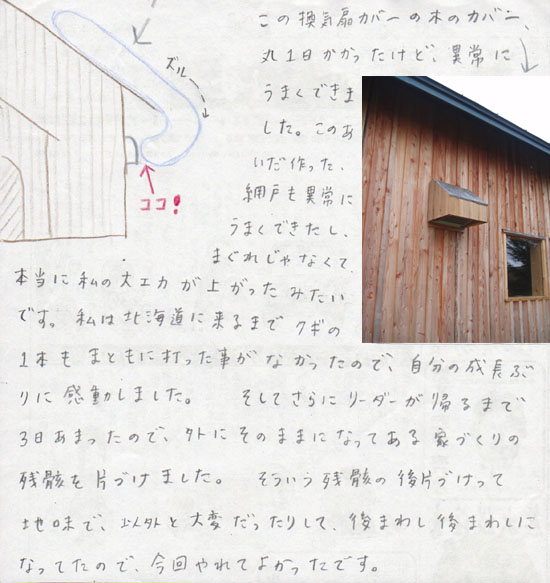 この換気扇カバーの木のカバー、
丸1日かかったけど、異常に
ズル
うまくできま
した。このあ
いだ作った、
網戸も異常に
ココ!
うまくできたし、
まぐれじゃなくて、
本当に私の大工力が上がったみたい
です。私は北海道に来るまでクギの
1本もまともに打った事がなかったので、自分の成長ぶ
りに感動しました。 そしてさらにリーダーが帰るまで
3日あまったので、外にそのままになってある家づくりの
残骸を片づけました。 そういう残骸の後片づけって
地味で、以外と大変だったりして、後まわし後まわしに
なってたので、今回やれてよかったです。